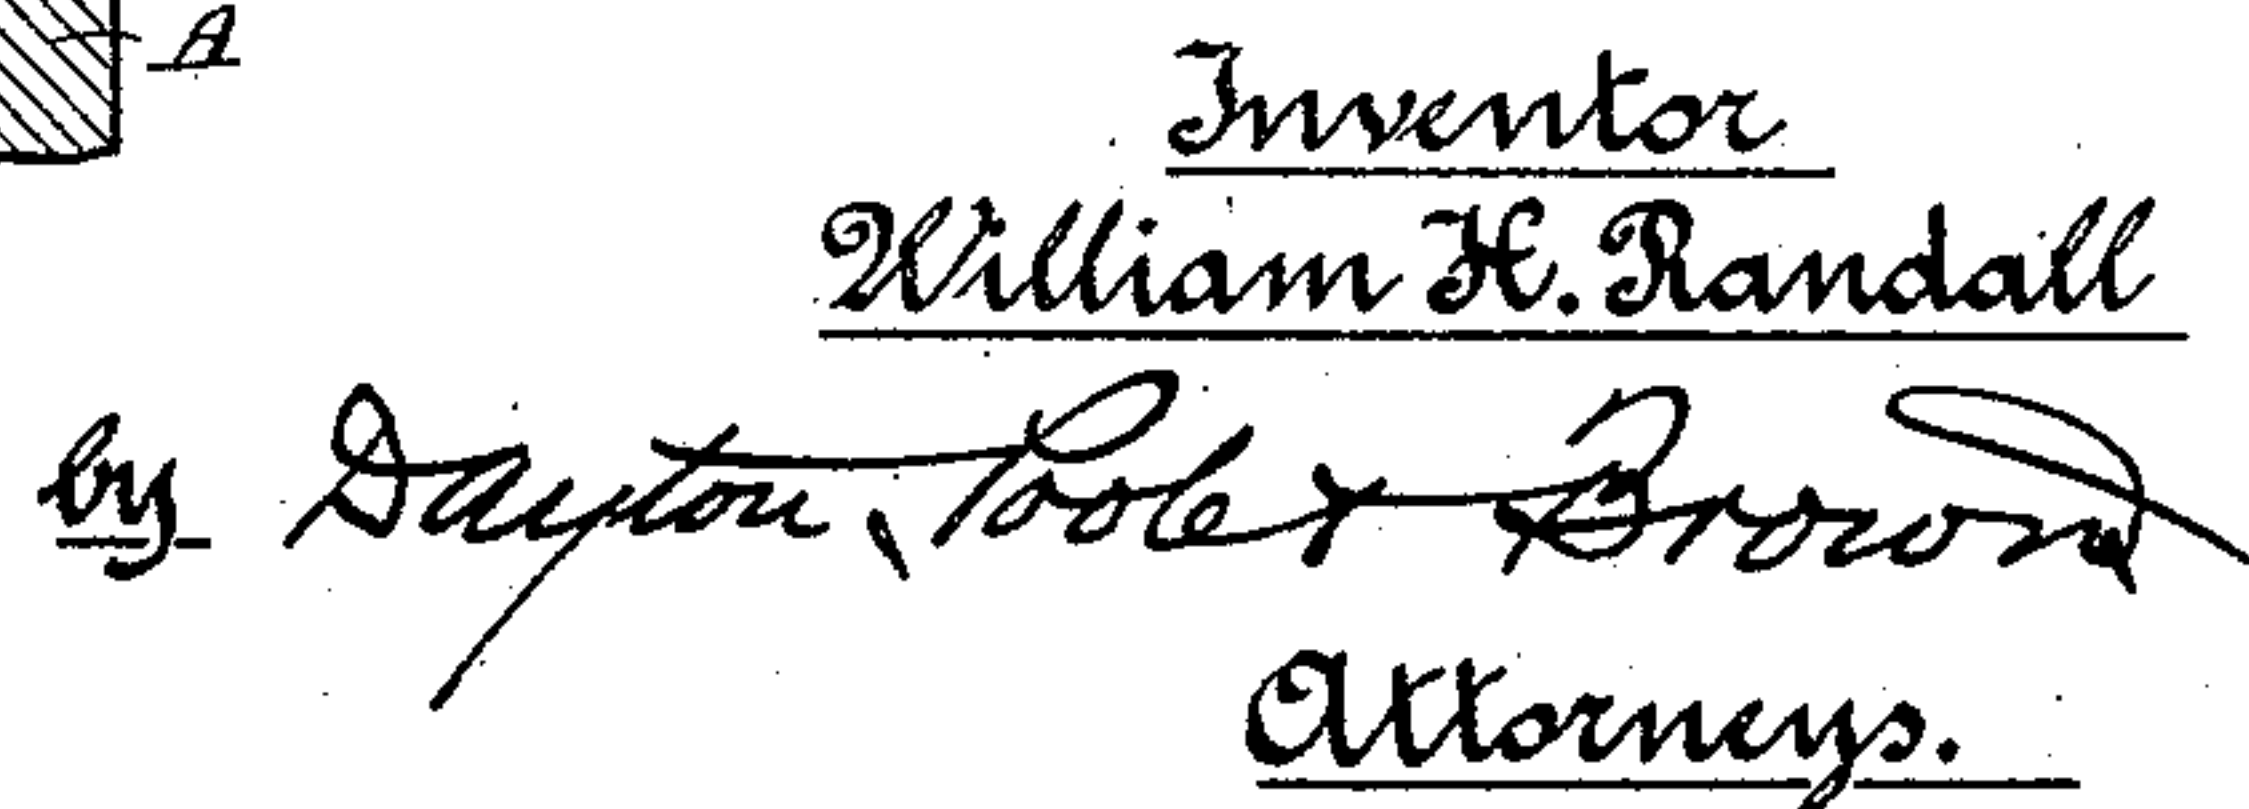 A
Inventor
William H. Randall
by Dayton, Poole & Brown
Attorneys.